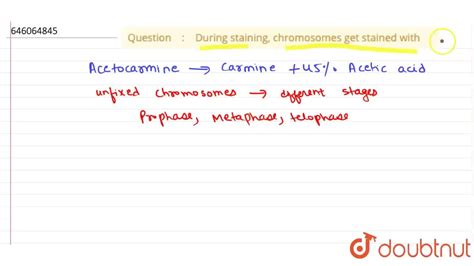 646064845
Question : During staining, chromosomes get stained with
Acetocarmine → Carmine + 45% Acetic acid
unfixed chromosomes → different stages
Prophase, Metaphase, telophase
doubtnut